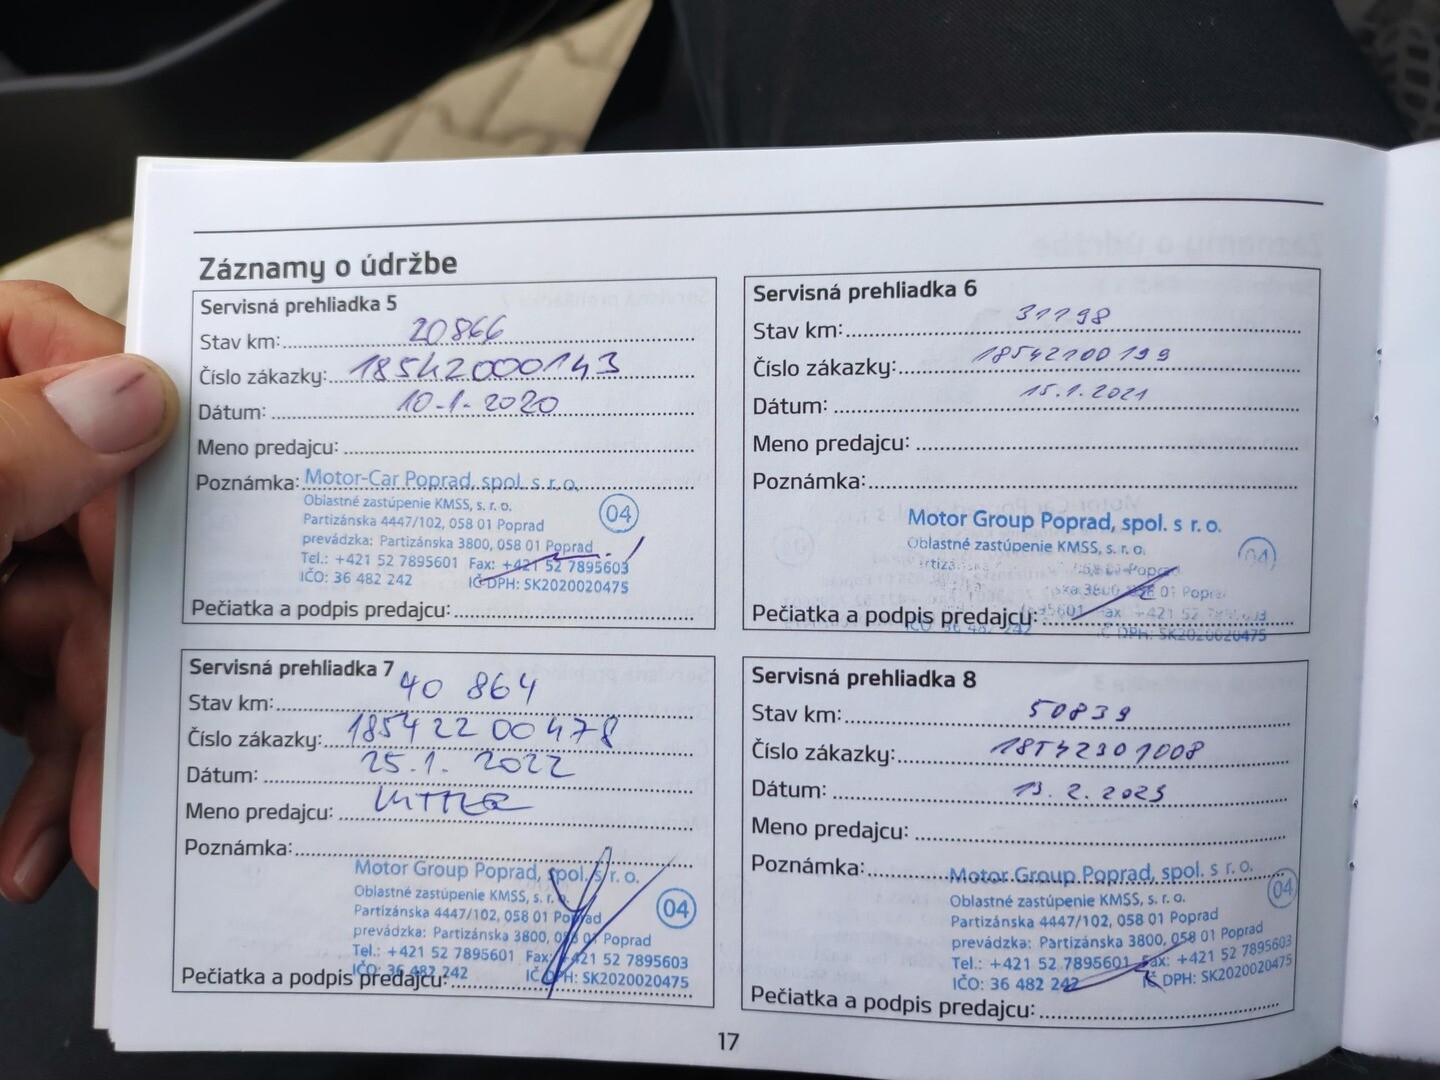 Záznamy o údržbe
Servisná prehliadka 5
Stav km: 20866
Číslo zákazky: 18542000143
Dátum: 10.1.2020
Meno predajcu:
Poznámka:
Motor-Car Poprad, spol. s r.o.
Oblastné zastúpenie KMSS, s. r. o.
04
Partizánska 4447/102, 058 01 Poprad
prevádzka: Partizánska 3800, 058 01 Poprad
Tel.: +421 52 7895601 Fax: +421 52 7895603
IČO: 36 482 242 IČ DPH: SK2020020475
Pečiatka a podpis predajcu:
Servisná prehliadka 6
Stav km: 31198
Číslo zákazky: 18542100199
Dátum: 15.1.2021
Meno predajcu:
Poznámka:
Motor Group Poprad, spol. s r. o.
Oblastné zastúpenie KMSS, s. r. o.
04
Poprad
3800, 058 01 Poprad
Fax +421 52
Pečiatka a podpis predajcu:
IČO 36 482 242 IČ DPH: SK2020020475
Servisná prehliadka 7
Stav km: 40 864
Číslo zákazky: 18542200478
Dátum: 25.1. 2022
Meno predajcu:
Poznámka:
Motor Group Poprad, spol. s r. o.
Oblastné zastúpenie KMSS, s. r. o.
04
Partizánska 4447/102, 058 01 Poprad
prevádzka: Partizánska 3800, 058 01 Poprad
Tel.: +421 52 7895601 Fax: +421 52 7895603
IČO: 36 482 242 IČ DPH: SK2020020475
Pečiatka a podpis predajcu:
Servisná prehliadka 8
Stav km: 50839
Číslo zákazky: 18542301008
Dátum: 13.2.2023
Meno predajcu:
Poznámka:
Motor Group Poprad, spol. s r. o.
Oblastné zastúpenie KMSS, s. r. o.
04
Partizánska 4447/102, 058 01 Poprad
prevádzka: Partizánska 3800, 058 01 Poprad
Tel.: +421 52 7895601 Fax: +421 52 7895603
IČO: 36 482 242 IČ DPH: SK2020020475
Pečiatka a podpis predajcu:
17